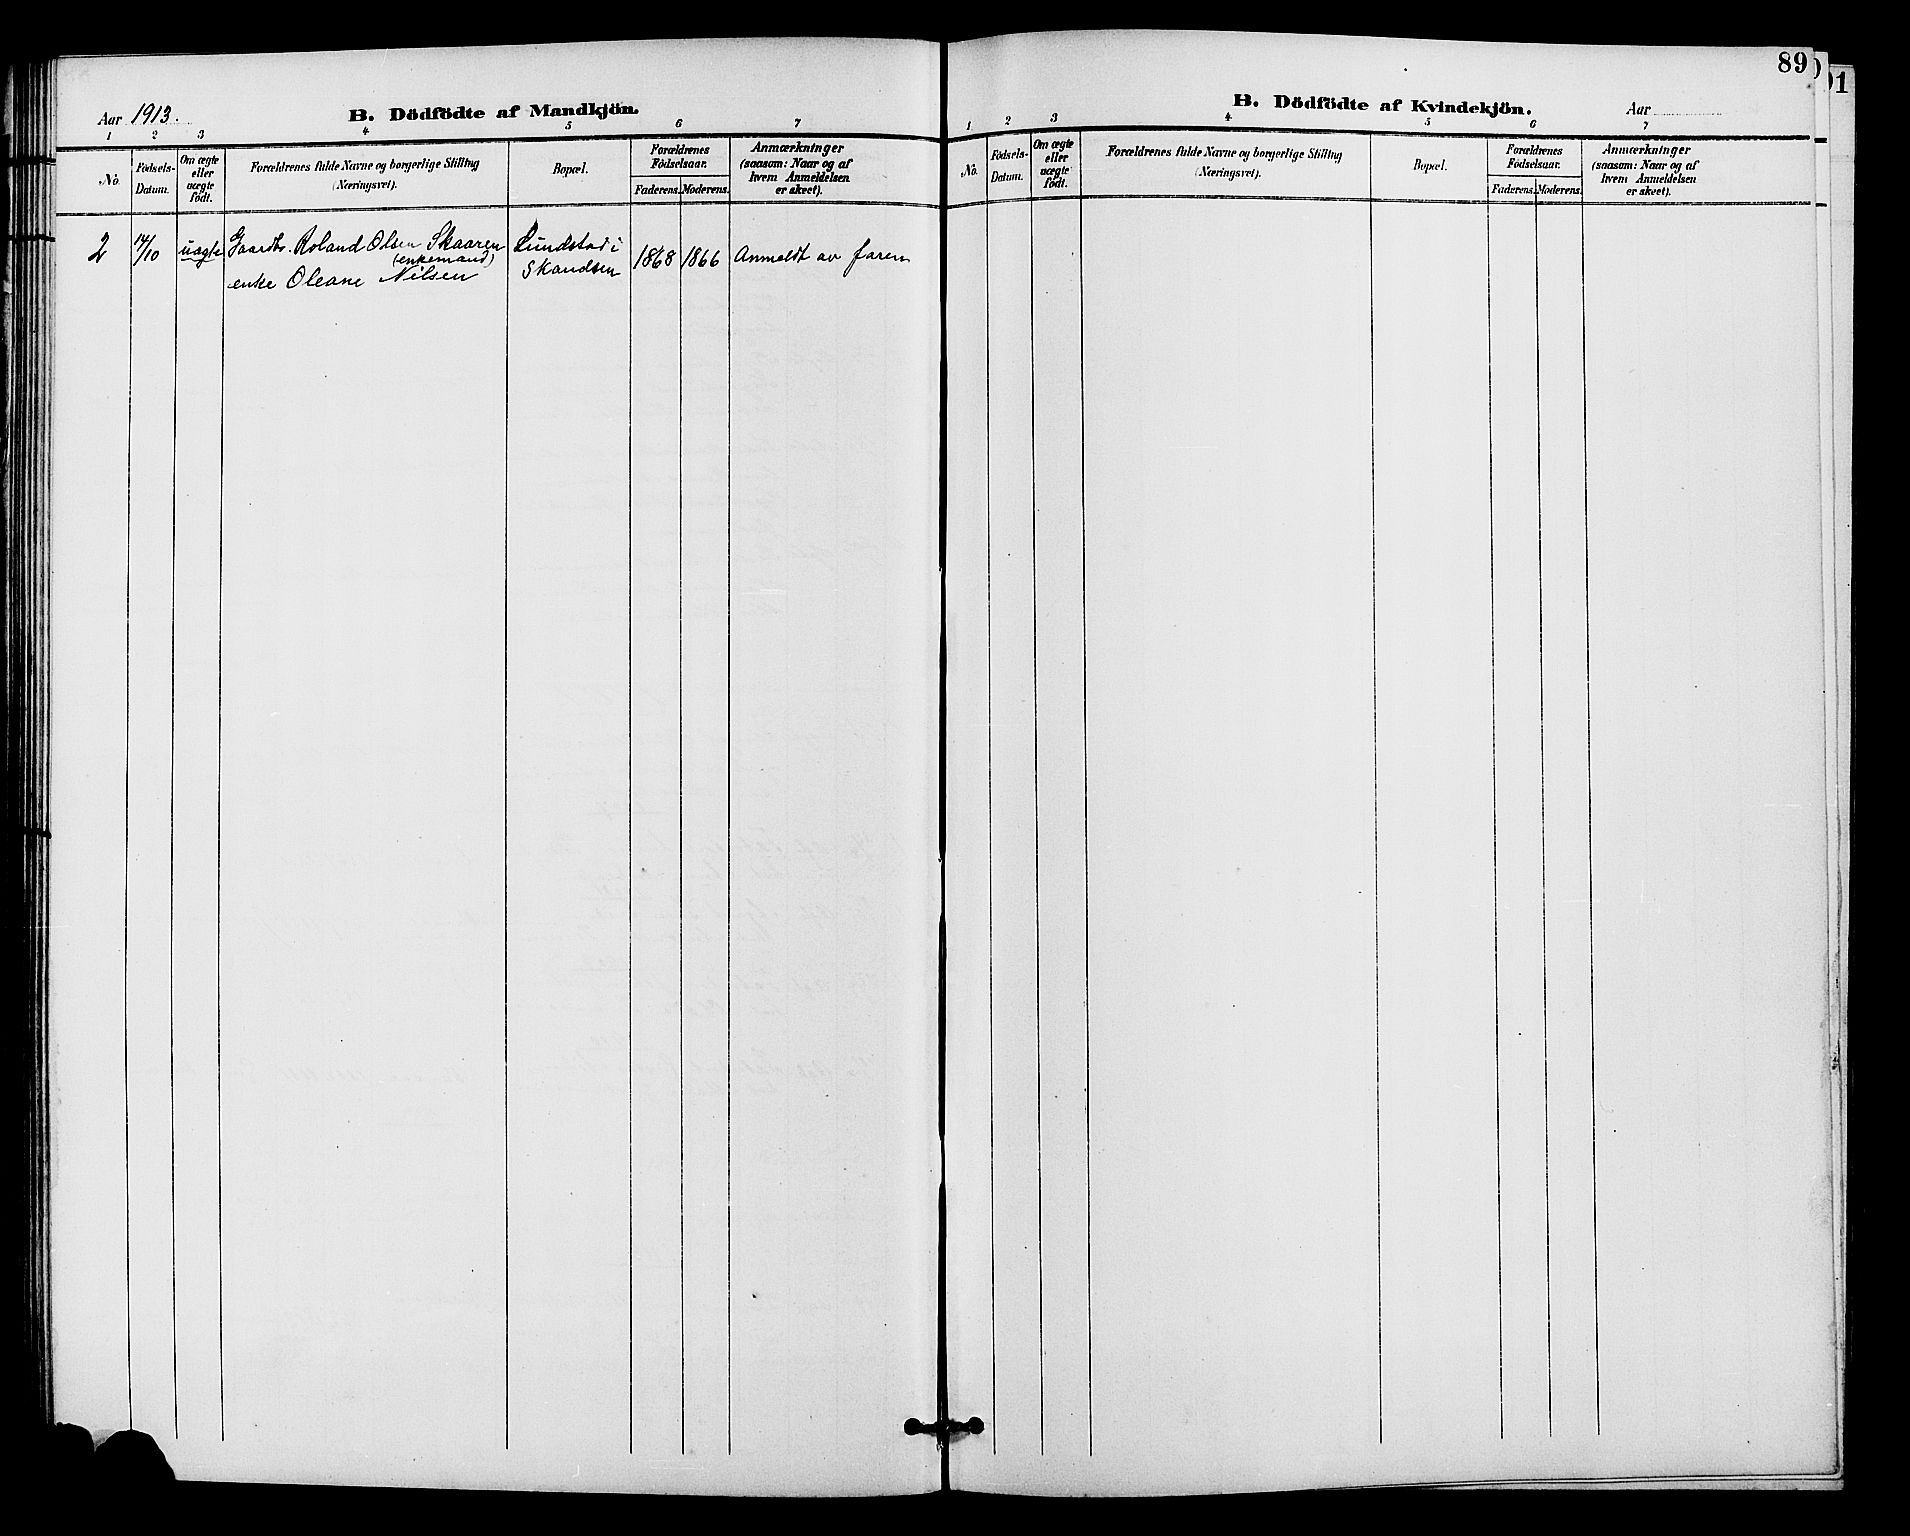 89
91
Aar 1913.
B. Dödfödte af Mandkjön.
1 2 3 4 5 6 7
No.
Födsels-Datum.
Om ægte eller uægte födt.
Forældrenes fulde Navne og borgerlige Stilling (Næringsvei).
Bopæl.
Forældrenes Födselsaar.
Faderens. Moderens.
Anmærkninger (saasom: Naar og af hvem Anmeldelsen er skeet).
2 14/10 uægte Gaardbr. Roland Olsen Skaaren
(enkemand)
enke Oleane Nilsen
Lundstad i
Skandsen
1868 1866 Anmeldt av faren
B. Dödfödte af Kvindekjön.
Aar
1 2 3 4 5 6 7
No.
Födsels-Datum.
Om ægte eller uægte födt.
Forældrenes fulde Navne og borgerlige Stilling (Næringsvei).
Bopæl.
Forældrenes Födselsaar.
Faderens. Moderens.
Anmærkninger (saasom: Naar og af hvem Anmeldelsen er skeet).